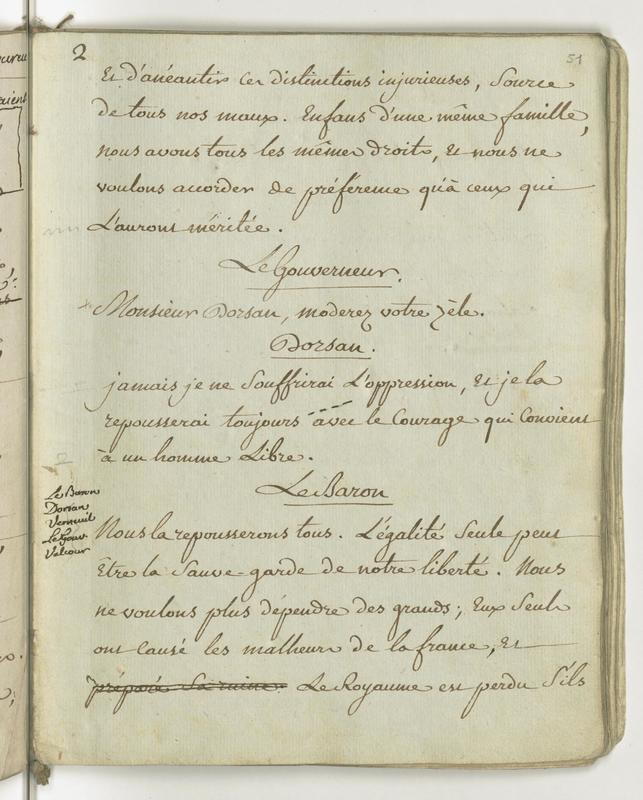 2
51
Et d'anéantir ces distinctions injurieuses, Source
de tous nos maux. Enfans d'une même famille,
nous avons tous les mêmes droits, Et nous ne
voulons accorder de préférence qu'à ceux qui
L'auront méritée.
Le Gouverneur.
Monsieur Dorsan, moderez votre zèle.
Dorsan.
jamais je ne Souffrirai L'oppression, Et je la
repousserai toujours avec le Courage qui Convient
à un homme Libre.
Le Baron
Le Baron
Dorsan
Verneuil
Le Gouv
Valcour
Nous la repousserons tous. L'égalité Seule peut
Etre la Sauve-garde de notre liberté. Nous
ne voulons plus dépendre des grands; Eux Seuls
ont Causé les malheurs de la france, Et
préparé Sa ruine. Le Royaume est perdu S'ils